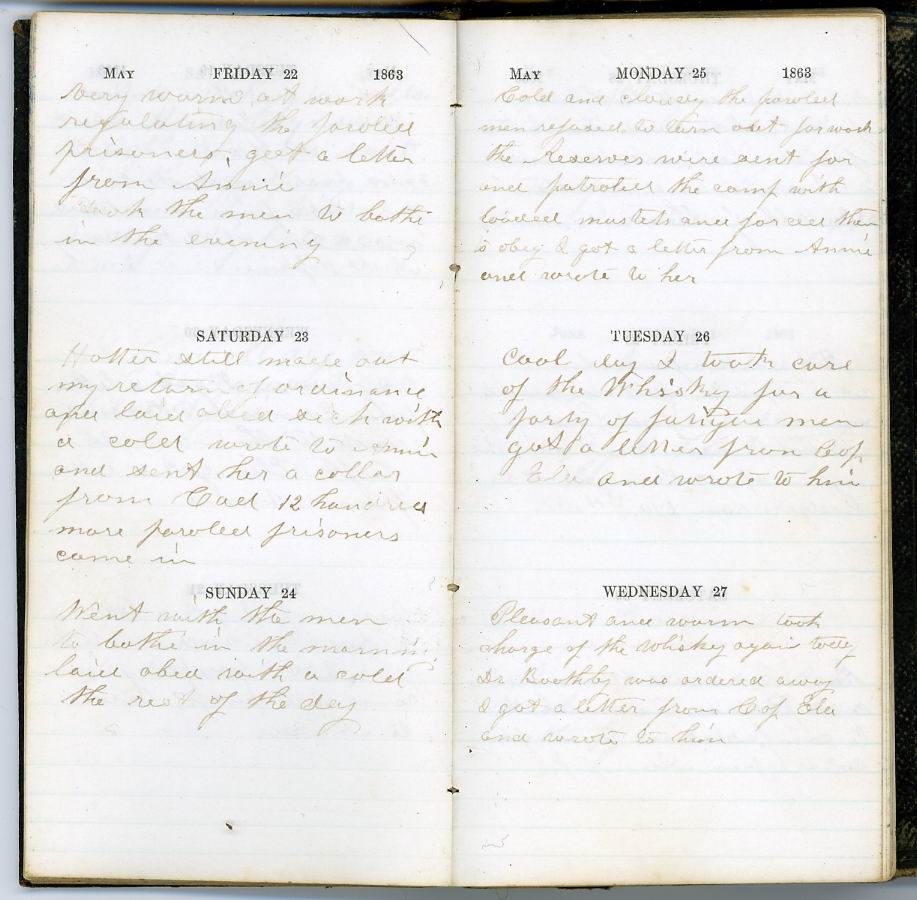 May FRIDAY 22 1863
Very warm at work
regulating the paroled
prisoners, got a letter
from Annie
took the men to bathe
in the evening
SATURDAY 23
Hotter still made out
my return of ordinance
and laid abed sick with
a cold wrote to Annie
and sent her a collar
from 12 hundred
more paroled prisoners
came in
SUNDAY 24
Went with the men
to bathe in the morning
laid abed with a cold
the rest of the day
May MONDAY 25 1863
Cold and cloudy the paroled
men refused to turn out for work
the Reserves were sent for
and patroled the camp with
loaded muskets and forced them
to obey I got a letter from Annie
and wrote to her
TUESDAY 26
Cool day I took care
of the Whisky for a
party of fatigue men
got a letter from Cap
Ela and wrote to him
WEDNESDAY 27
Pleasant and warm took
charge of the Whisky again today
Dr Boothby was ordered away
I got a letter from Cap Ela
and wrote to him